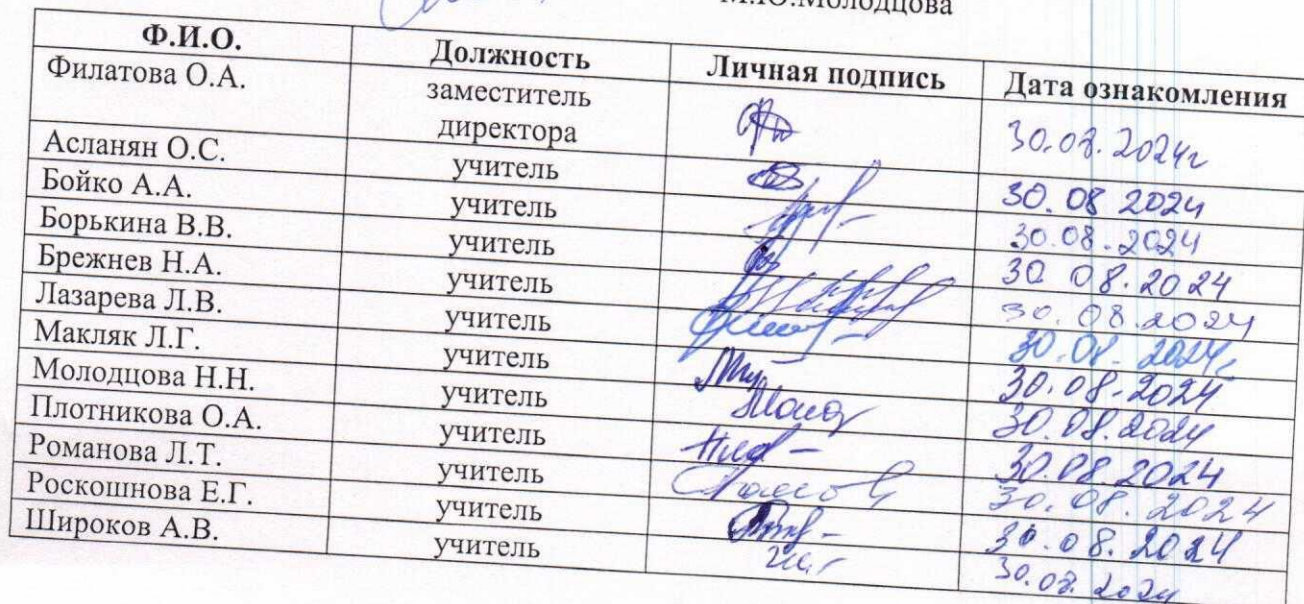 М.Ю.Молодцова
Ф.И.О. Должность Личная подпись Дата ознакомления
Филатова О.А. заместитель директора 30.08.2024г
Асланян О.С. учитель 30.08 2024
Бойко А.А. учитель 30.08.2024
Борькина В.В. учитель 30 08.2024
Брежнев Н.А. учитель 30.08.2024
Лазарева Л.В. учитель 30.08.2024г
Макляк Л.Г. учитель 30.08.2024
Молодцова Н.Н. учитель 30.08.2024
Плотникова О.А. учитель 30.08.2024
Романова Л.Т. учитель 30.08.2024
Роскошнова Е.Г. учитель 30.08.2024
Широков А.В. учитель 30.08.2024